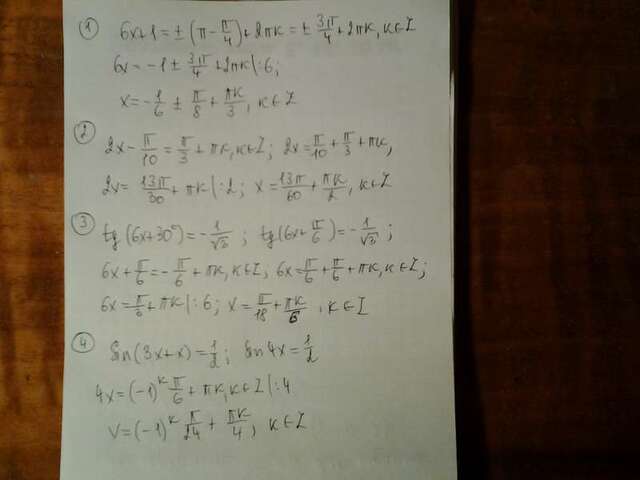 ① 6x+1 = ± (π - π/4) + 2πk = ± 3π/4 + 2πk, k∈Z
6x = -1 ± 3π/4 + 2πk |:6;
x = -1/6 ± π/8 + πk/3, k∈Z
② 2x - π/10 = π/3 + πk, k∈Z; 2x = π/10 + π/3 + πk,
2x = 13π/30 + πk |:2; x = 13π/60 + πk/2, k∈Z
③ tg(6x+30°) = -1/√3; tg(6x+π/6) = -1/√3;
6x + π/6 = -π/6 + πk, k∈Z; 6x = π/6 + π/6 + πk, k∈Z;
6x = π/3 + πk |:6; x = π/18 + πk/6, k∈Z
④ sin(3x+x) = 1/2; sin4x = 1/2
4x = (-1)^k π/6 + πk, k∈Z |:4
x = (-1)^k π/24 + πk/4, k∈Z